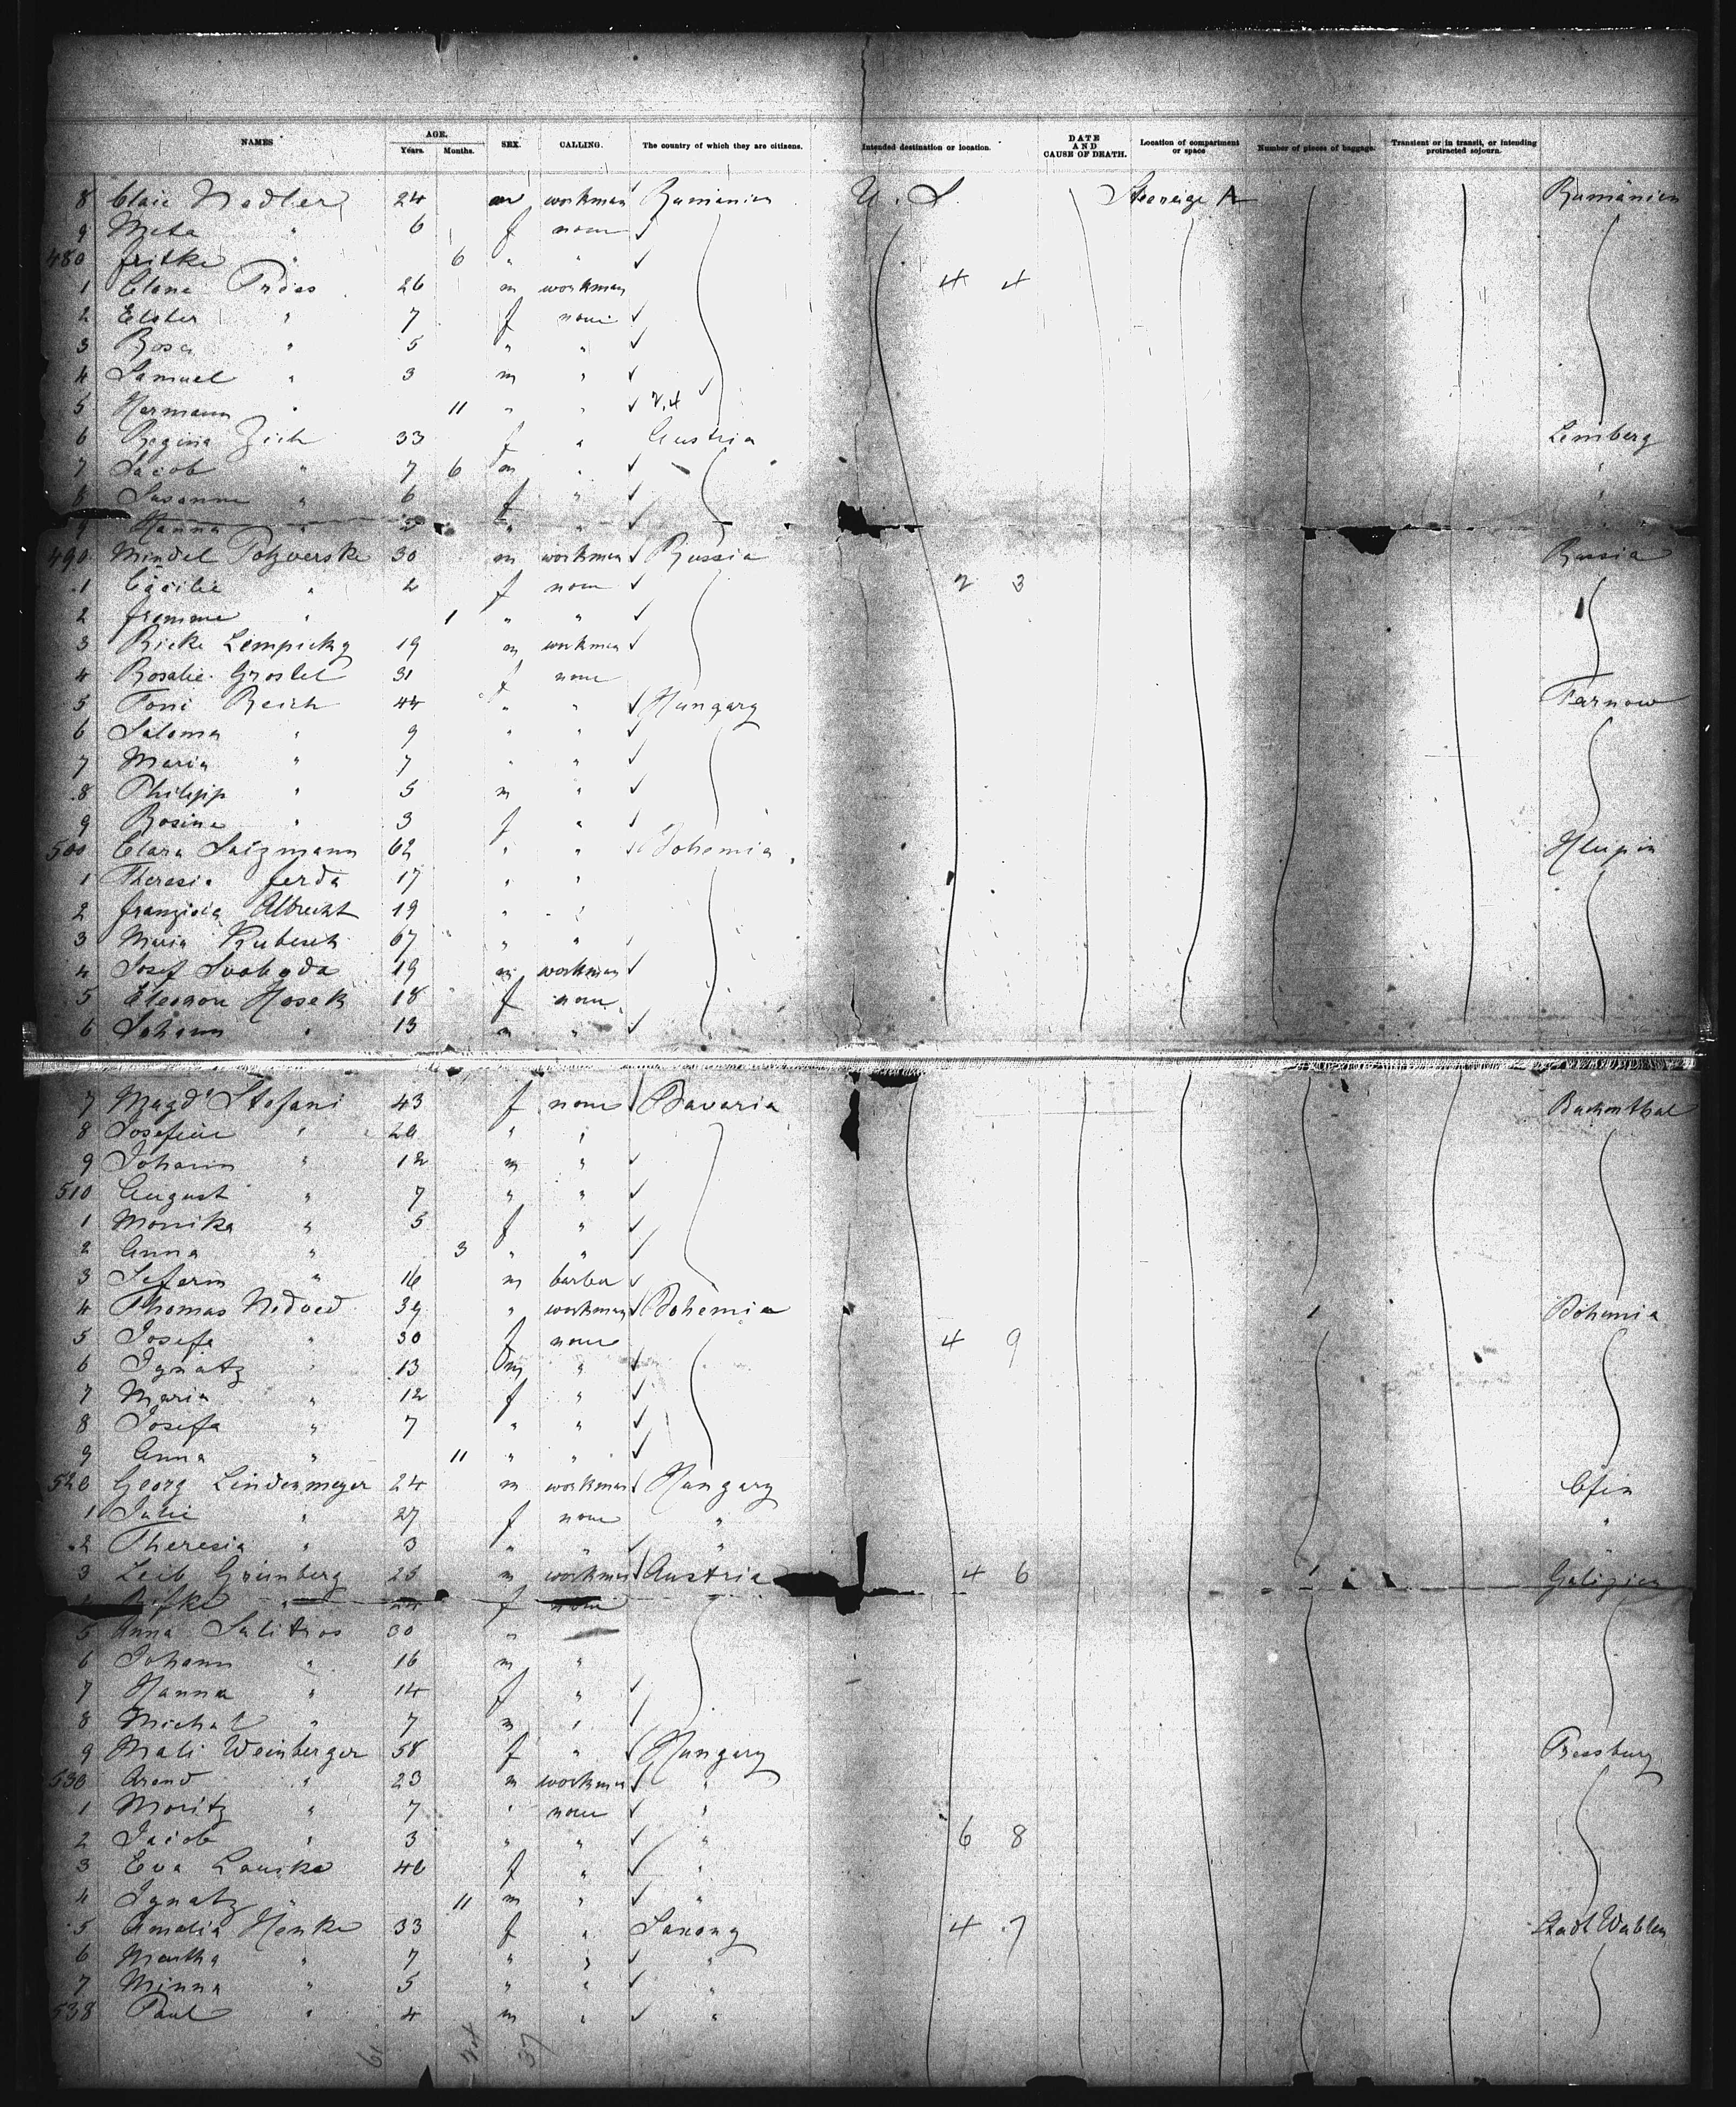 NAMES AGE. Years. Months. SEX. CALLING. The country of which they are citizens. Intended destination or location. DATE AND CAUSE OF DEATH. Location of compartment or space Number of pieces of baggage. Transient or in transit, or intending protracted sojourn.
8 Nadler 24 m workman Rumänien U. S. Steerage A Rumänien
9 Meta " 6 f none
480 " 6 " "
1 26 m workman 4 4
2 Esther " 7 f none
3 Rosa " 5 " "
4 Samuel " 3 m "
5 Hermann " 11 " "
6 Regina Zich 33 f " Austria Lemberg
7 Jacob " 7 6 m " "
8 Susanne " 6 f " "
9 Hanna " " "
490 Mindel 30 m workman Russia Russia
1 Cäcilie " 2 f none 2 3
2 " 1 " "
3 Ricke Lempicky 19 m workman
4 Rosalie 31 f none
5 Toni Reich 44 " " Hungary Tarnow
6 Saloma " 9 " "
7 Maria " 7 " "
8 Philipp " 5 m "
9 Rosina " 3 f "
500 Clara Salzmann 62 " " Bohemia
1 Theresia Ferda 17 " "
2 Albrecht 19 " "
3 Maria Kubesch 67 " "
4 Josef Svoboda 19 m workman
5 Eleonore Hosek 18 f none
6 Johann " 13 m "
7 Magd Stefani 43 f none Bavaria
8 " 26 " "
9 Johann " 12 m "
510 August " 7 " "
1 Monika " 5 f "
2 Anna " 3 " "
3 " 16 m barber
4 Thomas Nedved 39 " workman Bohemia 1 Bohemia
5 Josefa " 30 f none 4 9
6 Ignatz " 13 m "
7 Maria " 12 f "
8 Josefa " 7 " "
9 Anna " 11 " "
520 Georg Lindenmeyer 24 m workman Hungary
1 Julie " 27 f none " "
2 Theresia " 3 " " "
3 Leib Grünberg 25 m workman Austria 4 6 1 Galizien
4 " f none
5 Anna 30 "
6 Johann " 16 m "
7 Hanna " 14 f "
8 Michal " 7 m "
9 Mali Weinberger 58 f " Hungary Pressburg
530 " 23 m workman "
1 Moritz " 7 " none "
2 Jacob " 3 " " " 6 8
3 Eva 40 f " "
4 Ignatz " 11 m " "
5 Amalia Henke 33 f " Saxony 4 7 Stadt Wehlen
6 Martha " 7 " " "
7 Minna " 5 " " "
538 Paul " 4 m " "